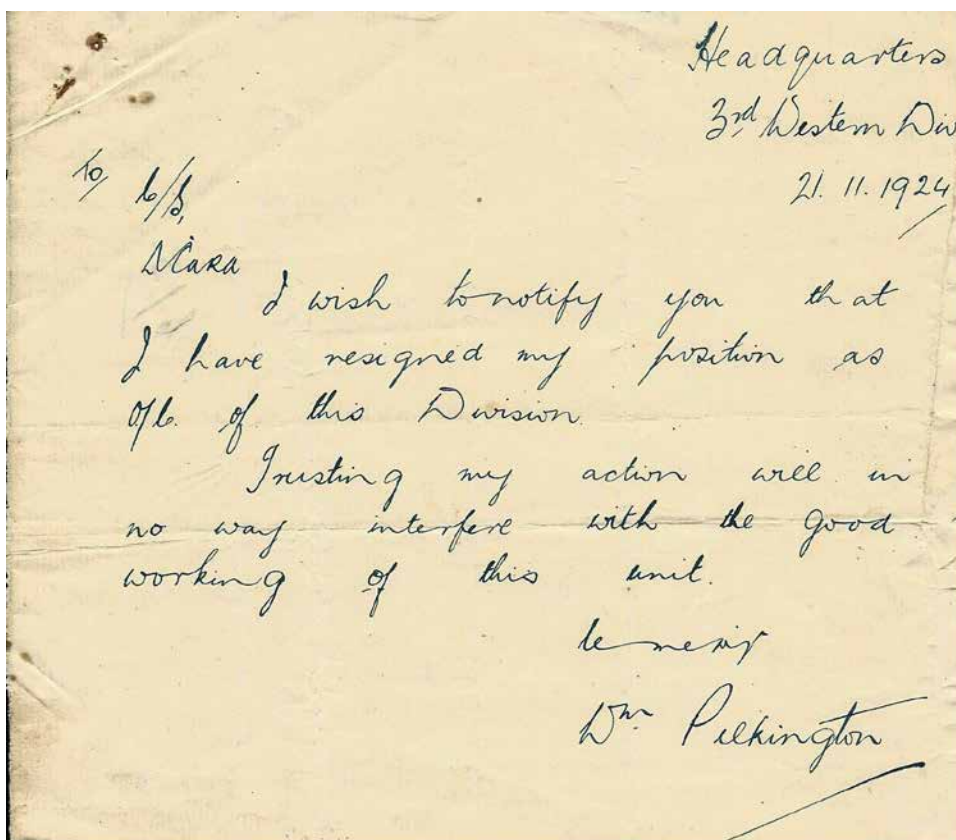 Headquarters
3rd Western Div
21.11.1924
To C/S,
A Cara
I wish to notify you that
I have resigned my position as
O/C. of this Division.
Trusting my action will in
no way interfere with the good
working of this unit.
le meas
Wm Pilkington